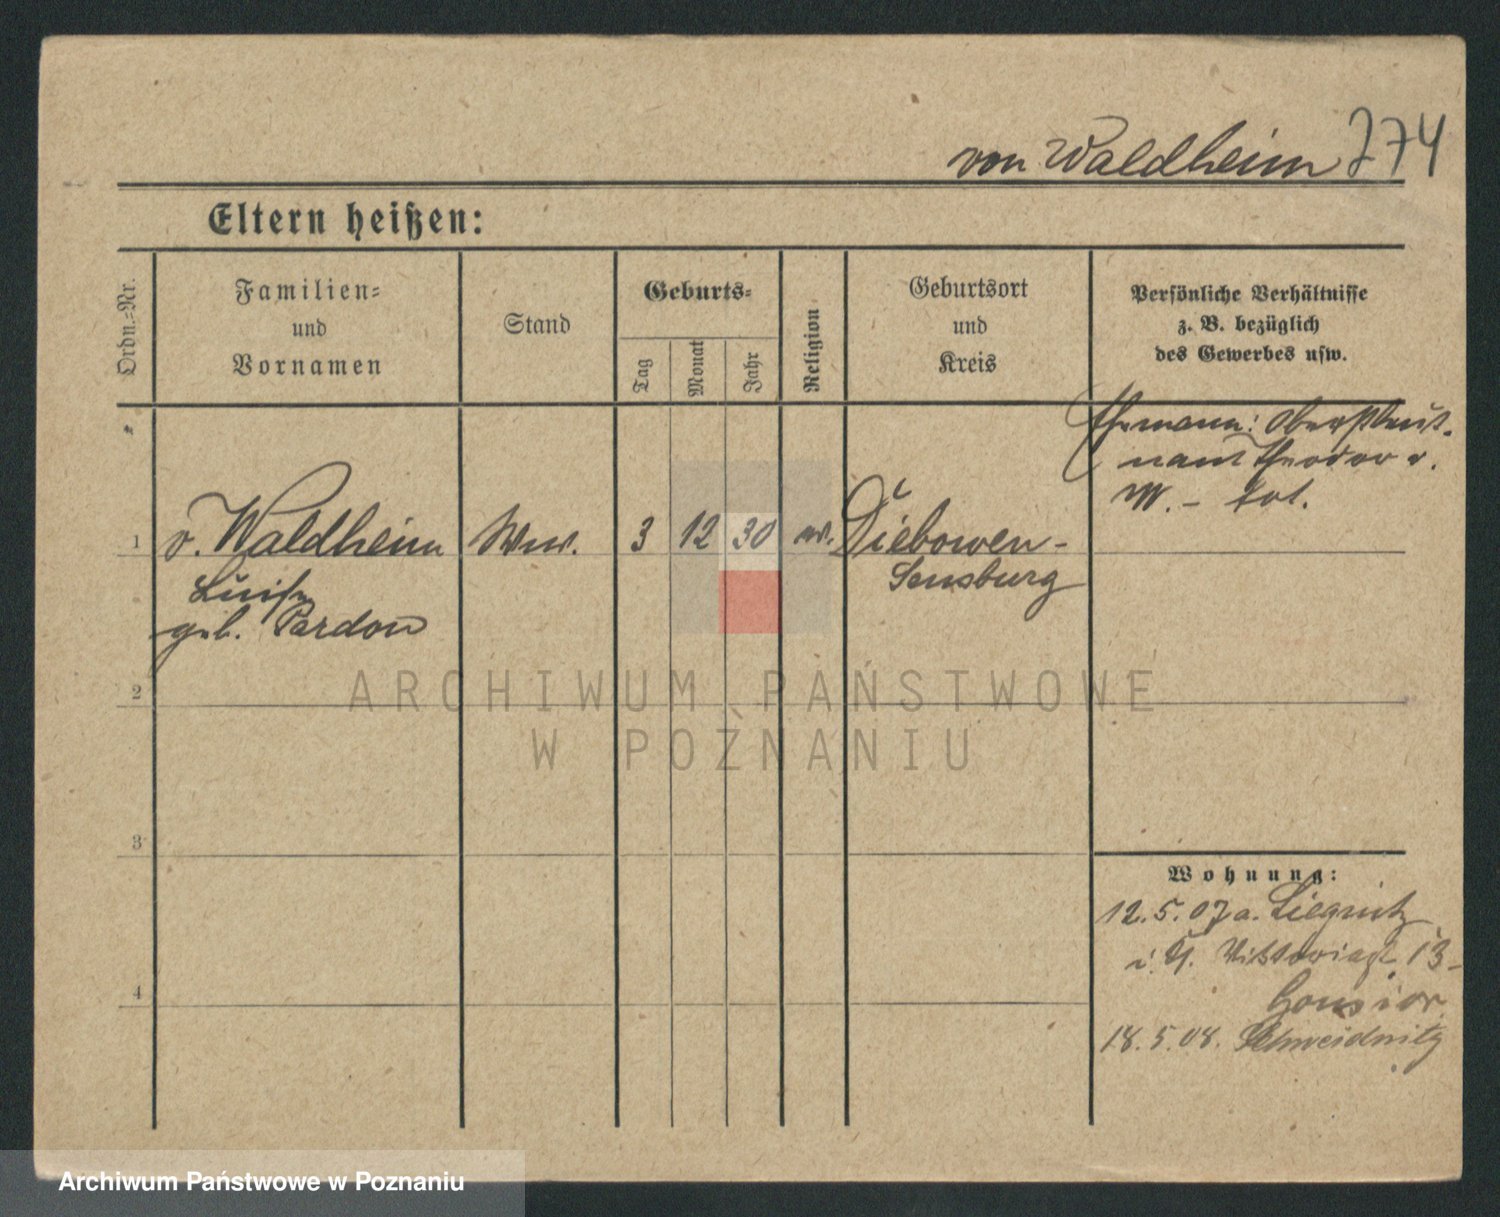 von Waldheim 774
Eltern heißen:
Ordn.-Nr.
Familien-
und
Vornamen
Stand
Geburts-
Tag
Monat
Jahr
Religion
Geburtsort
und
Kreis
Persönliche Verhältnisse
z. B. bezüglich
des Gewerbes usw.
Ehemann: Oberstleut-
nant Theodor v.
W. - tot.
1 v. Waldheim Wwe. 3 12 30 ev. Diebowen-
Luise Sensburg
geb. Pardon
2
3
4
Wohnung:
12.5.07 a. Liegnitz
i. V. Viktoriastr. 13-
18.5.08. Schweidnitz
ARCHIWUM PAŃSTWOWE
W POZNANIU
Archiwum Państwowe w Poznaniu